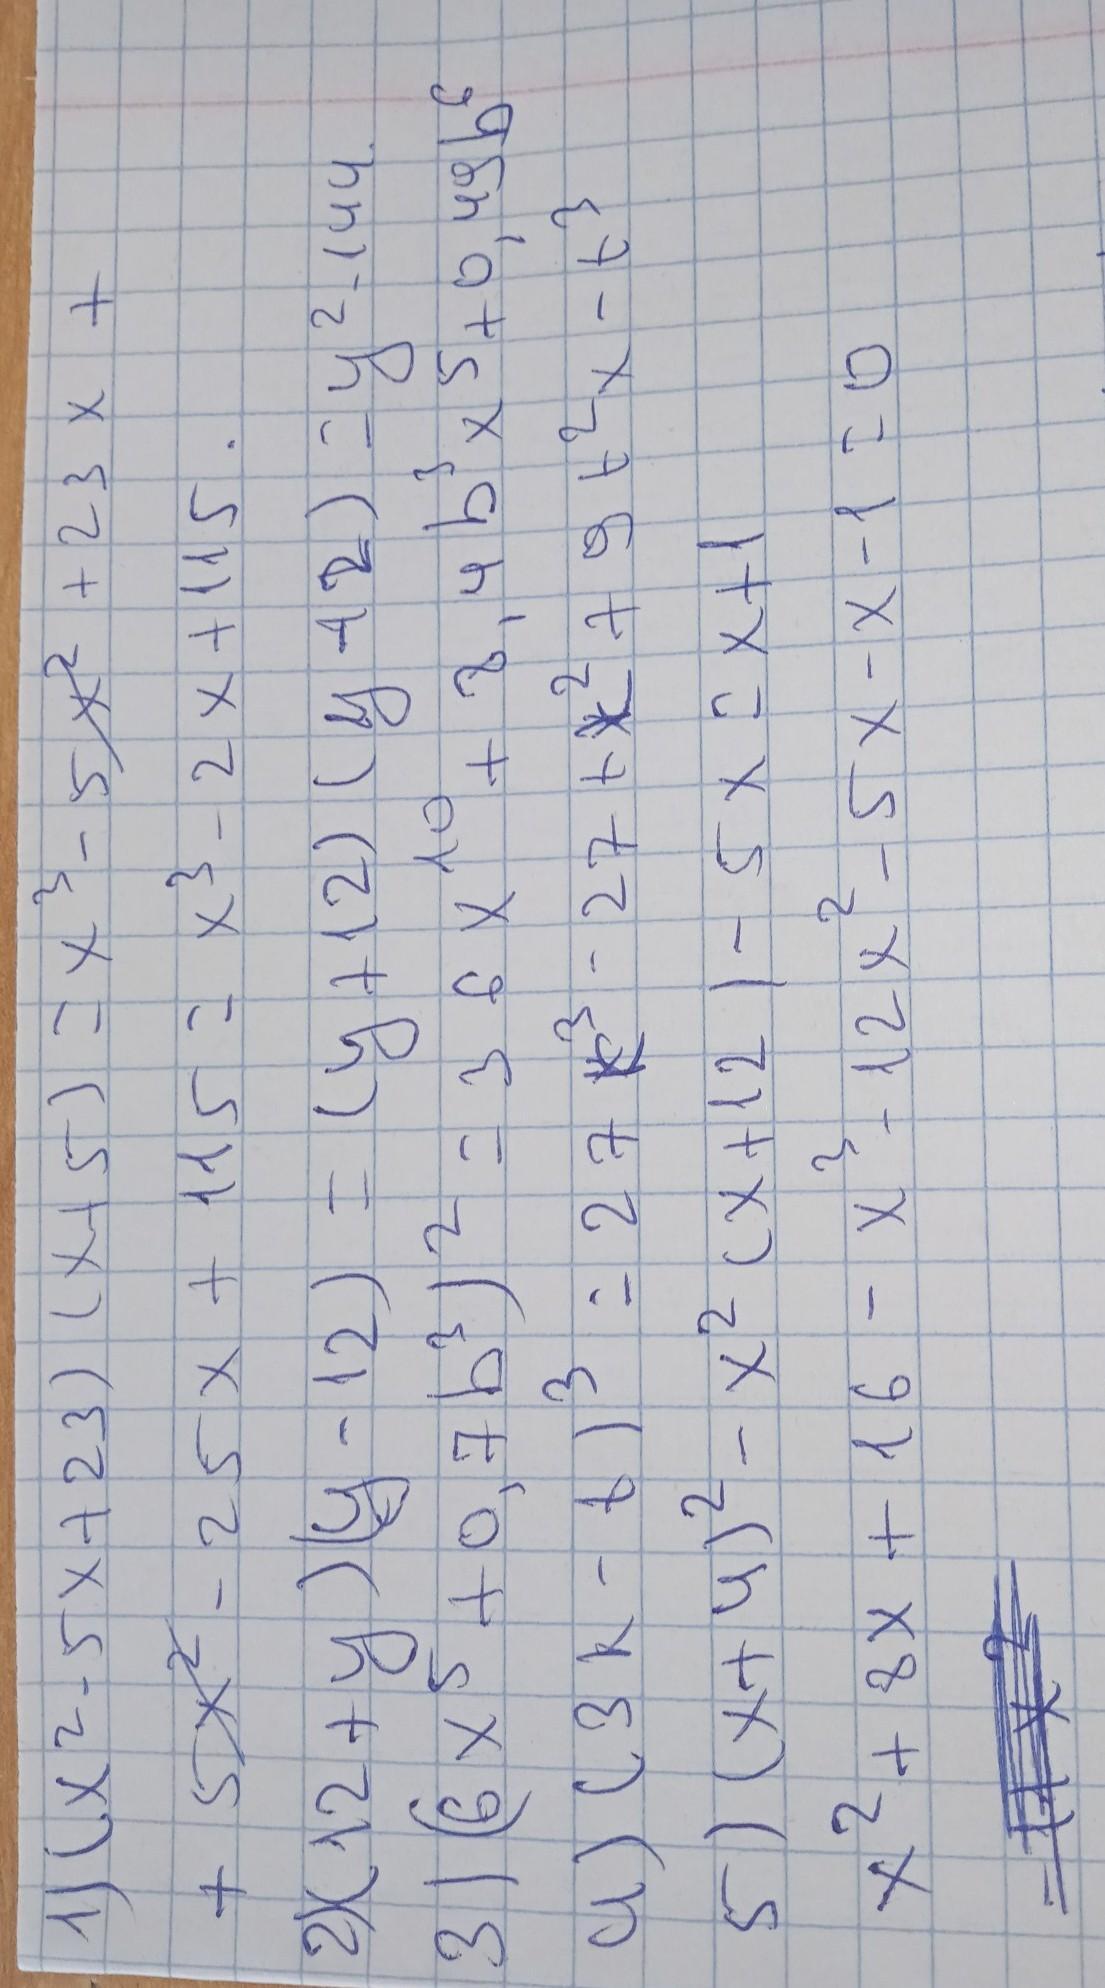 1) (x² - 5x + 23) (x + 5) = x³ - 5x² + 23x +
+ 5x² - 25x + 115 = x³ - 2x + 115.
2) (12 + y) (y - 12) = (y + 12) (y - 12) = y² - 144.
3) (6x⁵ + 0,7b³)² = 36x¹⁰ + 8,4b³x⁵ + 0,49b⁶
4) (3k - t)³ = 27k³ - 27tk² + 9t²x - t³
5) (x + 4)² - x² (x + 12) - 5x = x + 1
x² + 8x + 16 - x³ - 12x² - 5x - x - 1 = 0